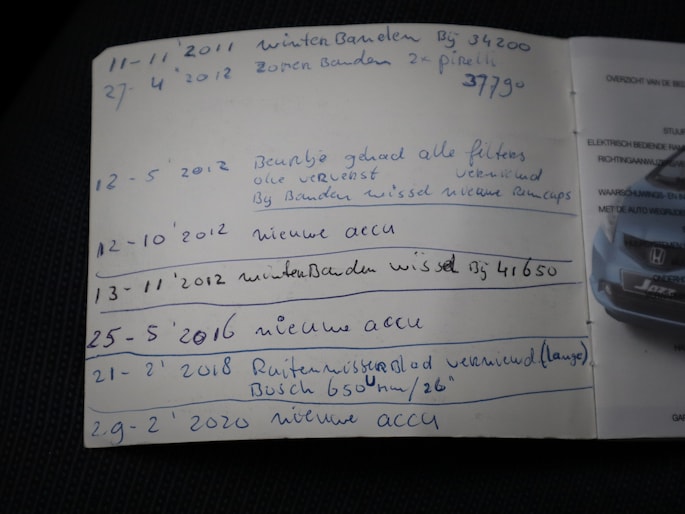 11-11'2011 winterBanden Bij 34200
27-4'2012 zomerBanden 2x pirelli
37790
12-5'2012 Beurtje gehad alle filters
olie ververst vernieuwd
Bij Banden wissel nieuwe
12-10'2012 nieuwe accu
13-11'2012 winterBanden wissel Bij 41650
25-5'2016 nieuwe accu
21-2'2018 RuitenwisserBlad vernieuwd (lange)
Bosch 650 mm/26"
29-2'2020 nieuwe accu
OVERZICHT VAN DE
STUUR
ELEKTRISCH BEDIENDE
WAARSCHUWINGS- EN
MET DE AUTO
Jazz